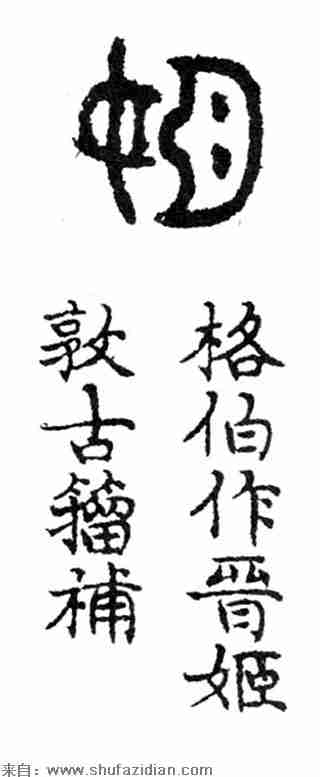 姬
格伯作晉姬
敦古籀補
来自：www.shufazidian.com